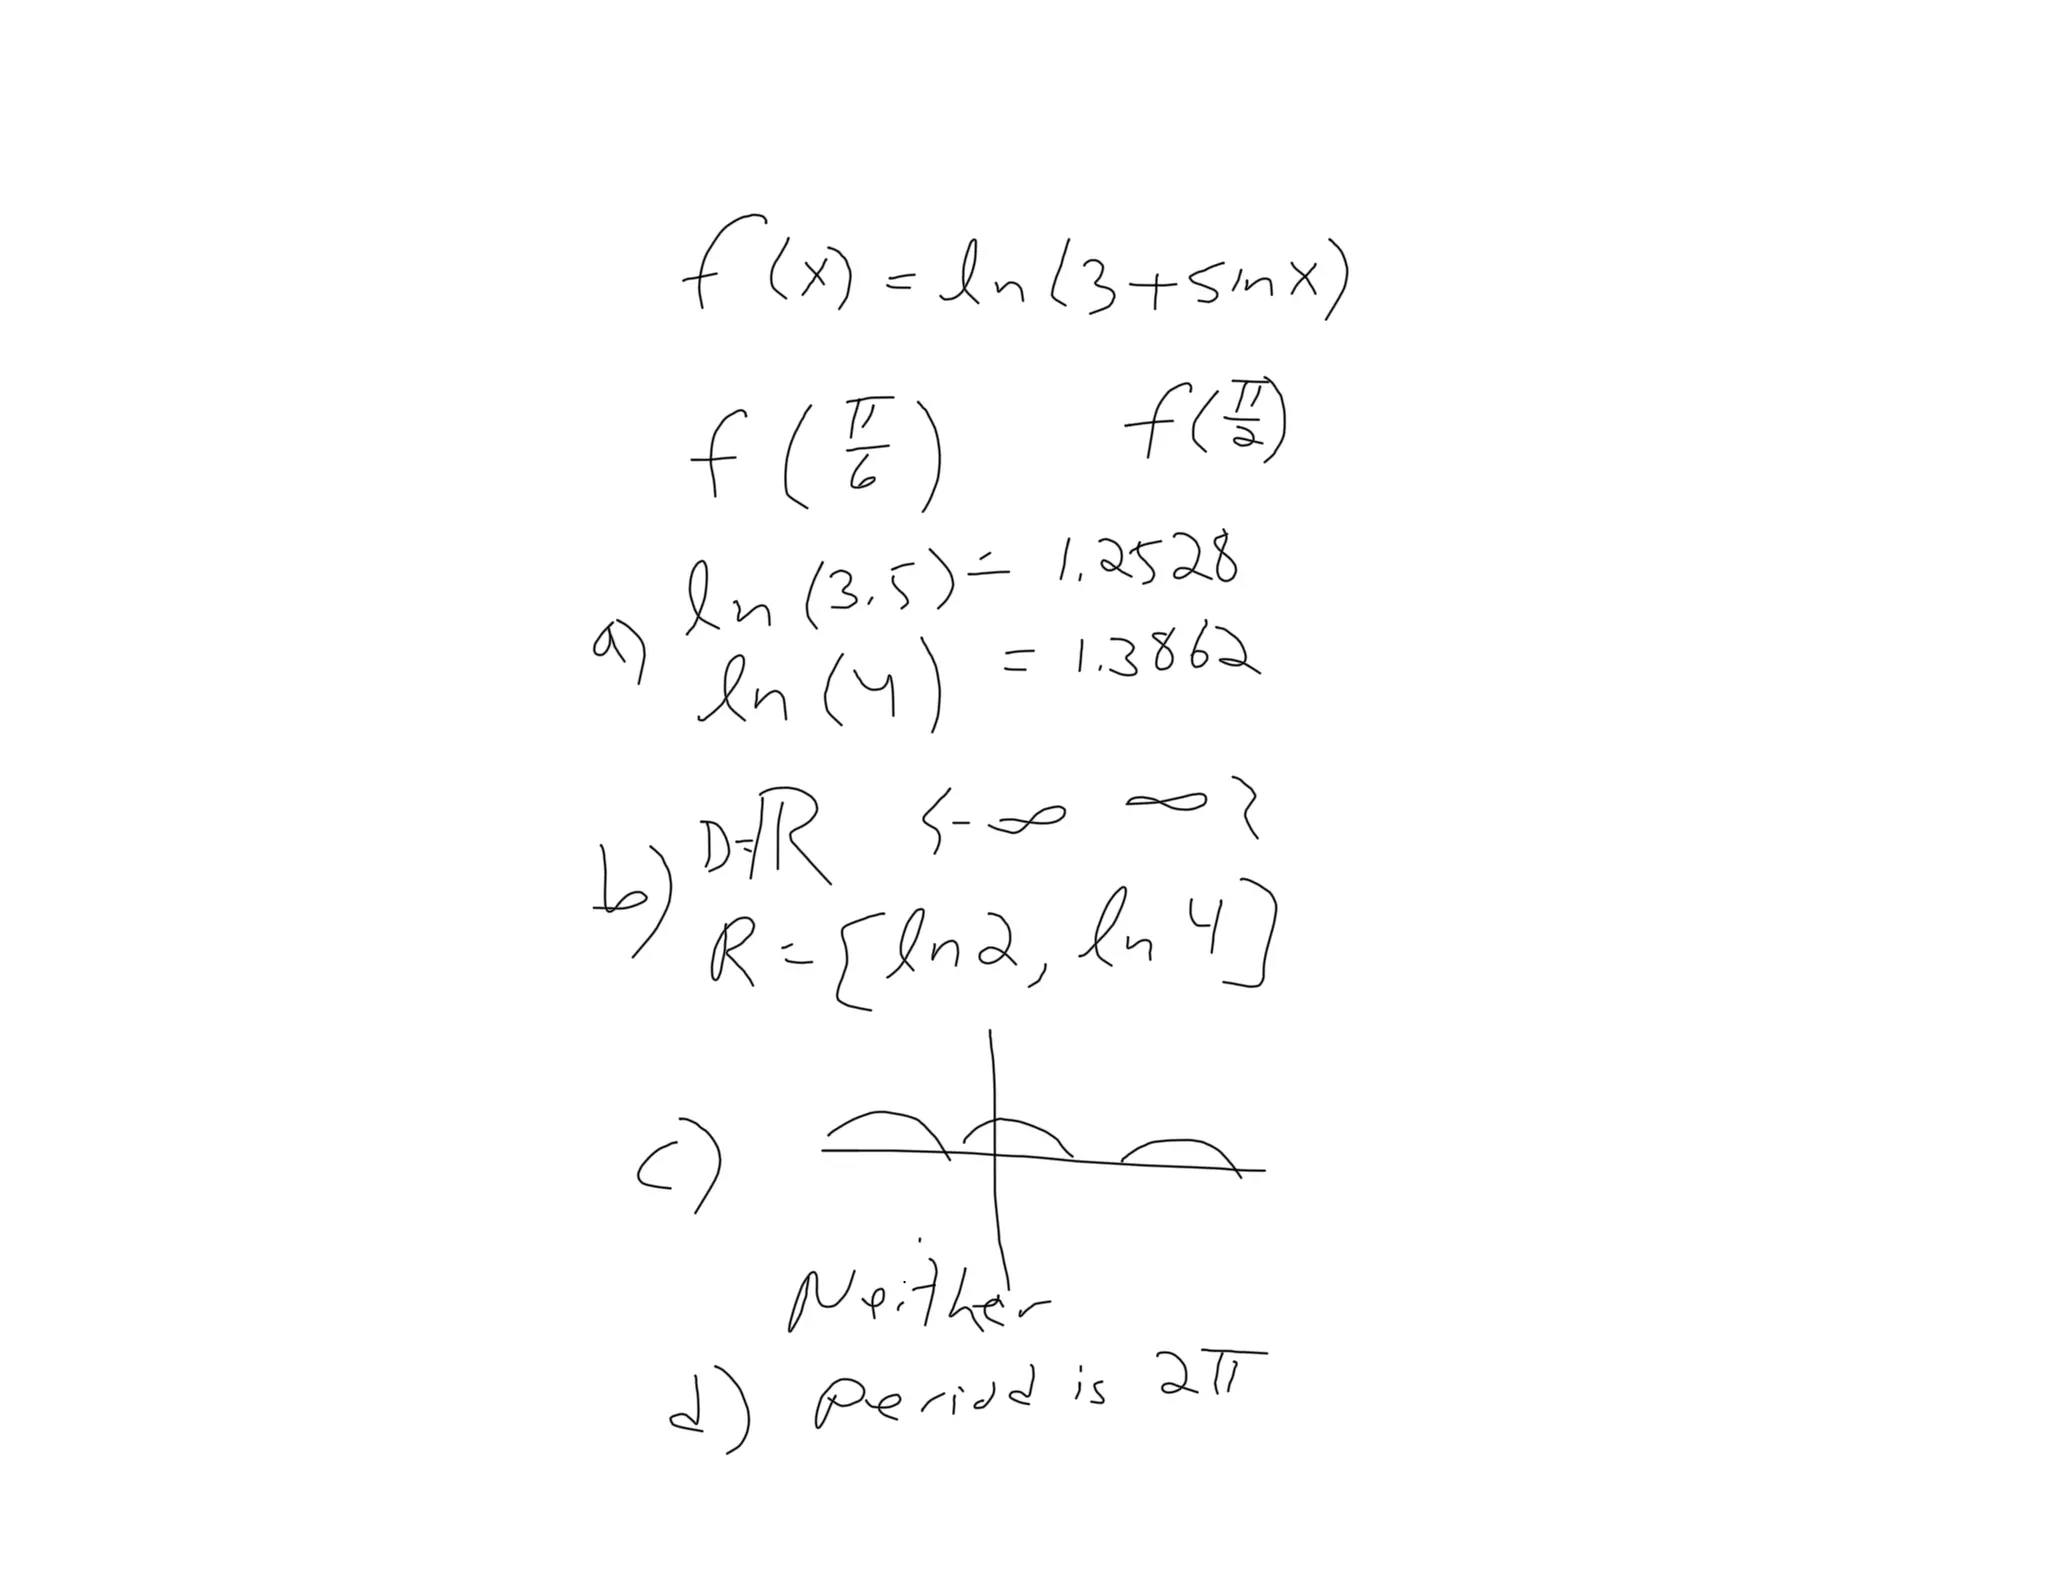 f(x) = ln(3+sinx)
f(π/6) f(π/2)
a) ln(3.5) = 1.2528
ln(4) = 1.3862
b) D=ℝ {-∞ ∞}
R = [ln2, ln4]
c)
Neither
d) period is 2π